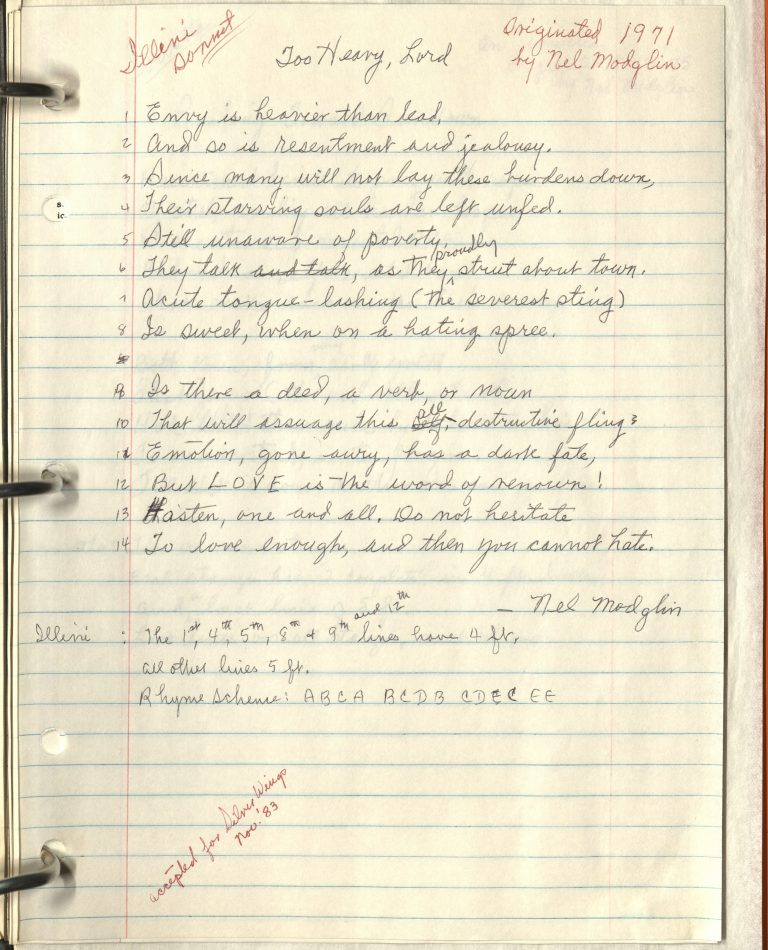 Illini
Sonnet
Too Heavy, Lord
Originated 1971
by Nel Modglin
1 Envy is heavier than lead,
2 And so is resentment and jealousy.
3 Since many will not lay these burdens down,
4 Their starving souls are left unfed.
5 Still unaware of poverty,
6 They talk and talk, as they proudly strut about town.
7 Acute tongue-lashing (the severest sting)
8 Is sweet, when on a hating spree.
9 Is there a deed, a verb, or noun
10 That will assuage this all destructive fling?
11 Emotion, gone awry, has a dark fate,
12 But LOVE is the word of renown!
13 Hasten, one and all. Do not hesitate
14 To love enough, and then you cannot hate.
— Nel Modglin
Illini : The 1st, 4th, 5th, 8th & 9th and 12th lines have 4 ft.
all other lines 5 ft.
Rhyme Scheme: ABCA BCDB CDEC EE
accepted for Silver Wings
Nov. '83
s.
ic.